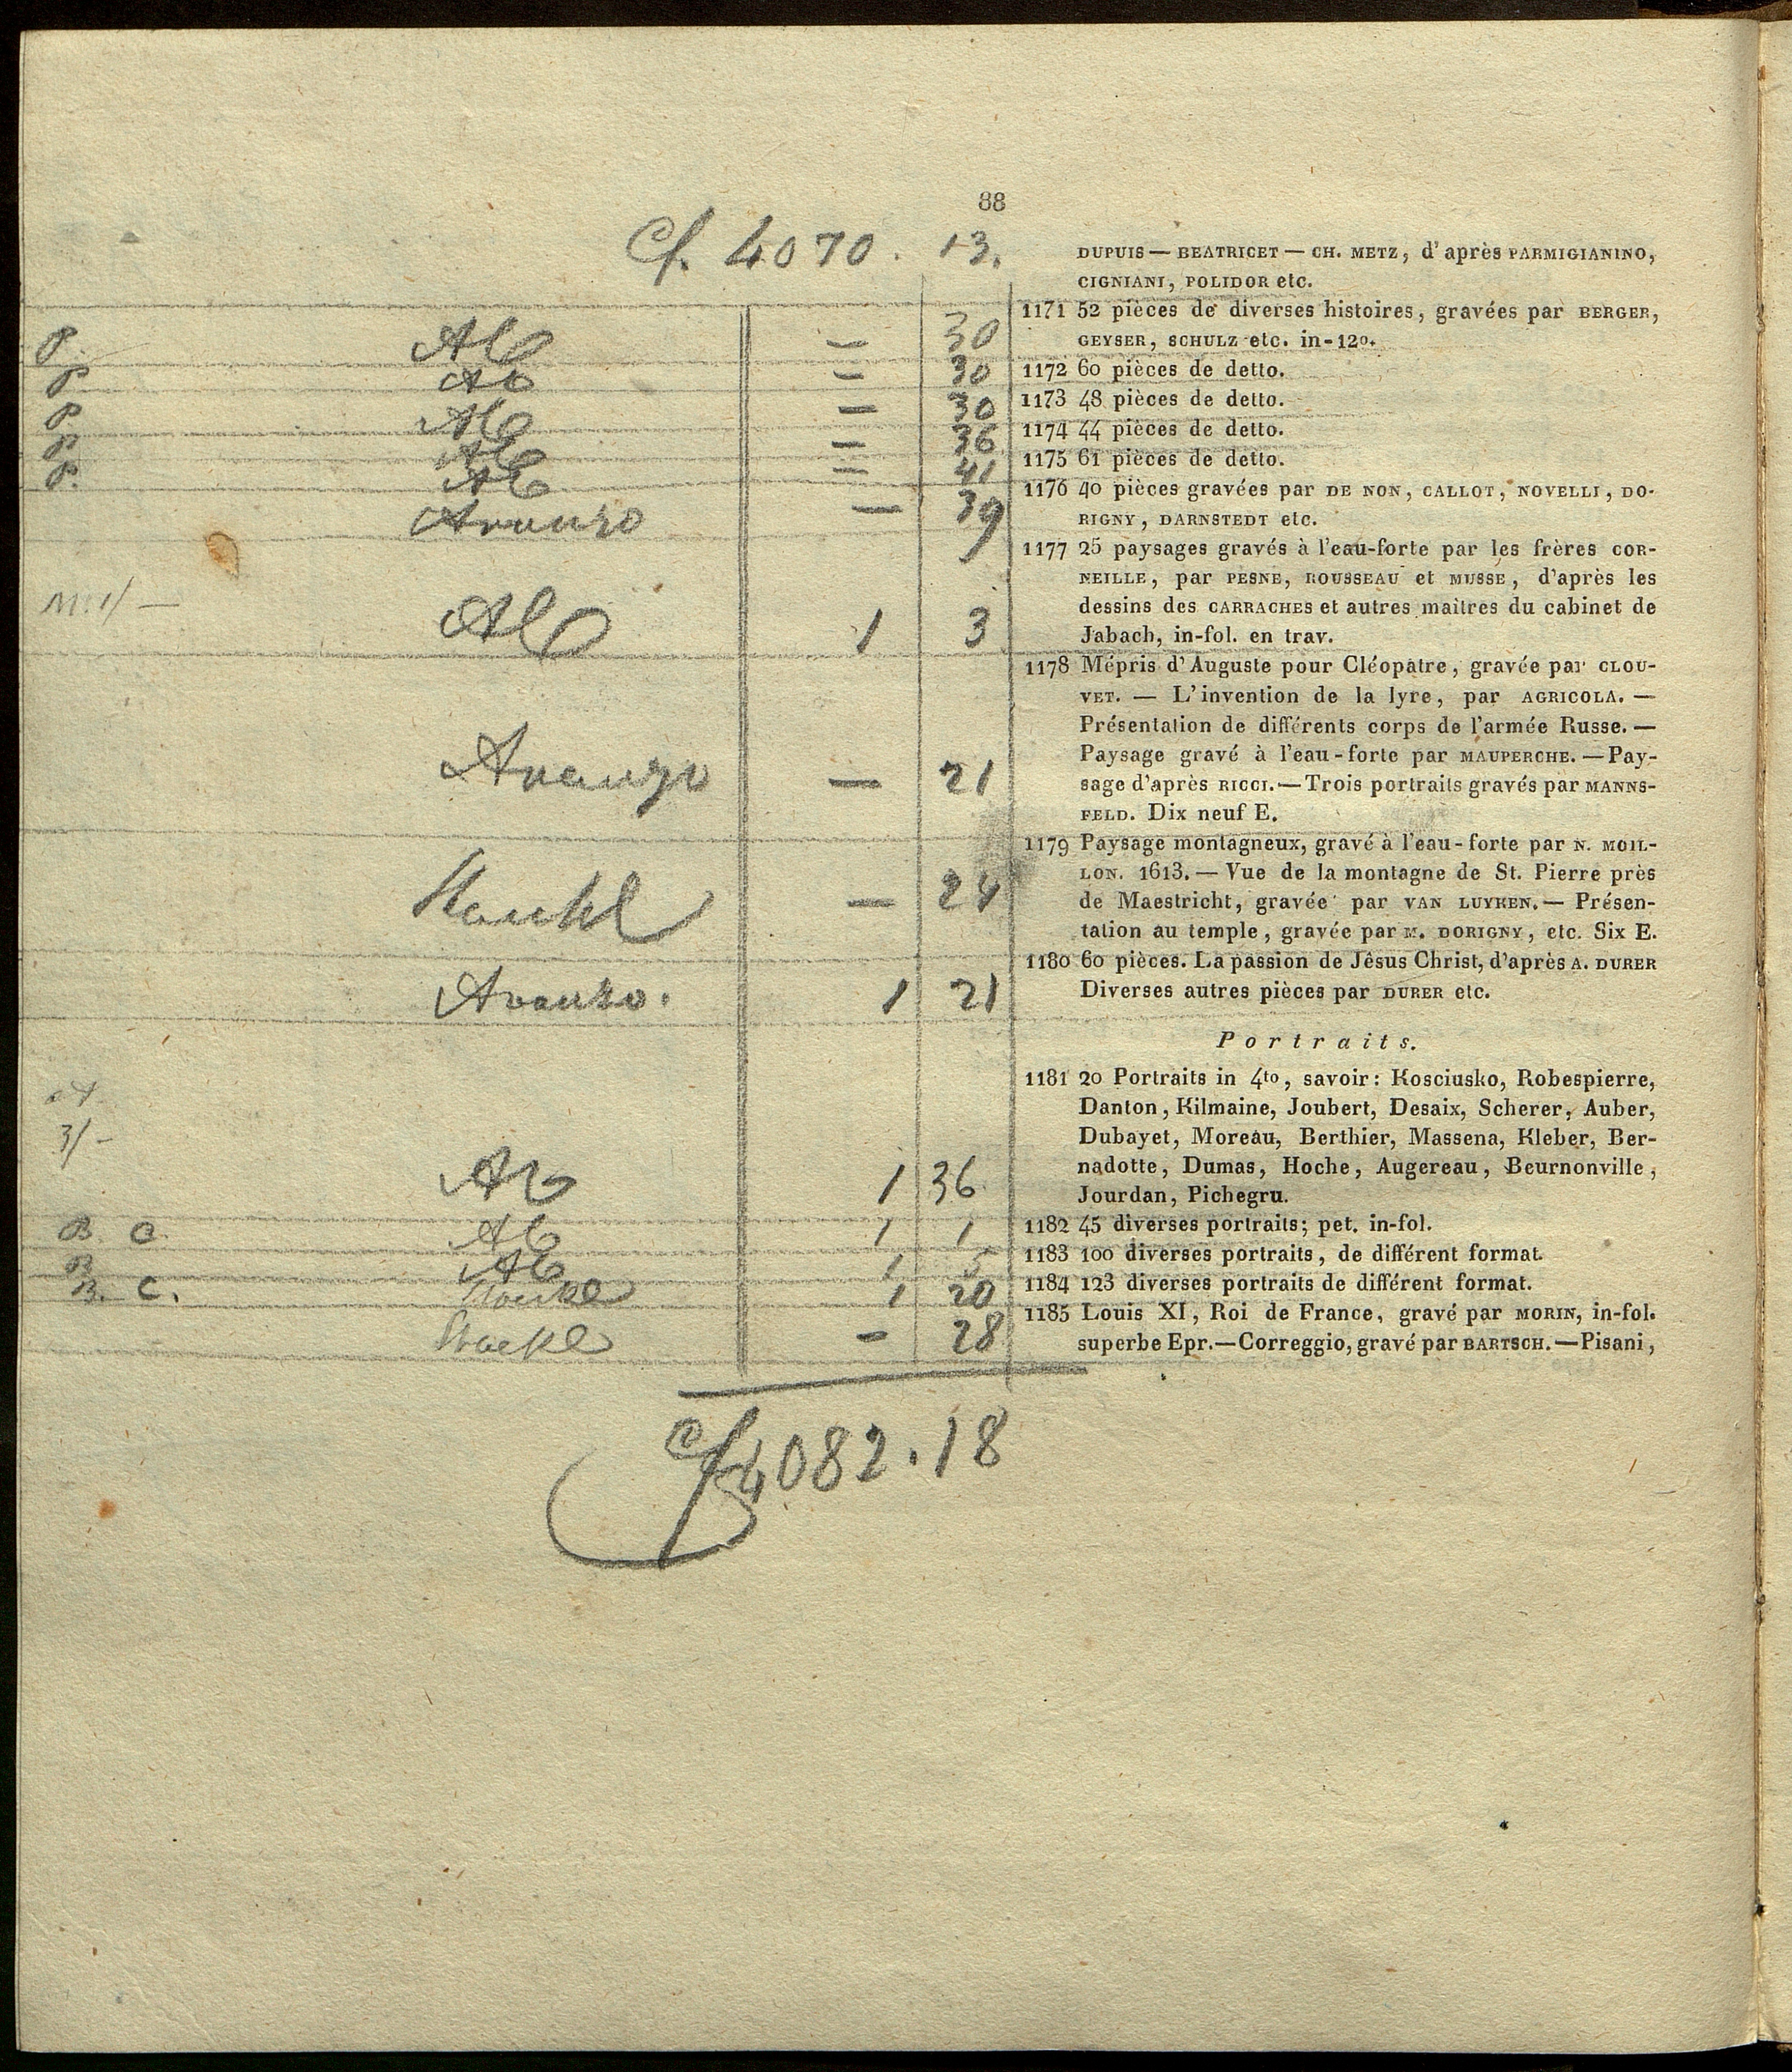 88
Cf. 4070. 13.
DUPUIS — BEATRICET — CH. METZ, d'après PARMIGIANINO,
CIGNIANI, POLIDOR etc.
1171 52 pièces de diverses histoires, gravées par BERGER,
GEYSER, SCHULZ etc. in-12º.
P. — 30
1172 60 pièces de detto.
P — 30
1173 48 pièces de detto.
P — 30
1174 44 pièces de detto.
P. — 36
1175 61 pièces de detto.
P. — 41
1176 40 pièces gravées par DE NON, CALLOT, NOVELLI, DO-
RIGNY, DARNSTEDT etc.
— 39
1177 25 paysages gravés à l'eau-forte par les frères COR-
NEILLE, par PESNE, ROUSSEAU et MUSSE, d'après les
dessins des CARRACHES et autres maîtres du cabinet de
Jabach, in-fol. en trav.
1 3
1178 Mépris d'Auguste pour Cléopatre, gravée par CLOU-
VET. — L'invention de la lyre, par AGRICOLA. —
Présentation de différents corps de l'armée Russe. —
Paysage gravé à l'eau-forte par MAUPERCHE. — Pay-
sage d'après RICCI. — Trois portraits gravés par MANNS-
FELD. Dix neuf E.
— 21
1179 Paysage montagneux, gravé à l'eau-forte par N. MOIL-
LON. 1613. — Vue de la montagne de St. Pierre près
de Maestricht, gravée par VAN LUYKEN. — Présen-
tation au temple, gravée par M. DORIGNY, etc. Six E.
— 24
1180 60 pièces. La passion de Jêsus Christ, d'après A. DURER
Diverses autres pièces par DURER etc.
1 21
Portraits.
1181 20 Portraits in 4to, savoir: Kosciusko, Robespierre,
Danton, Kilmaine, Joubert, Desaix, Scherer, Auber,
Dubayet, Moreau, Berthier, Massena, Kleber, Ber-
nadotte, Dumas, Hoche, Augereau, Beurnonville,
Jourdan, Pichegru.
3/- 1 36
1182 45 diverses portraits; pet. in-fol.
B. C. 1 1
1183 100 diverses portraits, de différent format.
B 1 5
1184 123 diverses portraits de différent format.
B. C. 1 20
1185 Louis XI, Roi de France, gravé par MORIN, in-fol.
superbe Epr. — Correggio, gravé par BARTSCH. — Pisani,
— 28
Cf 4082.18